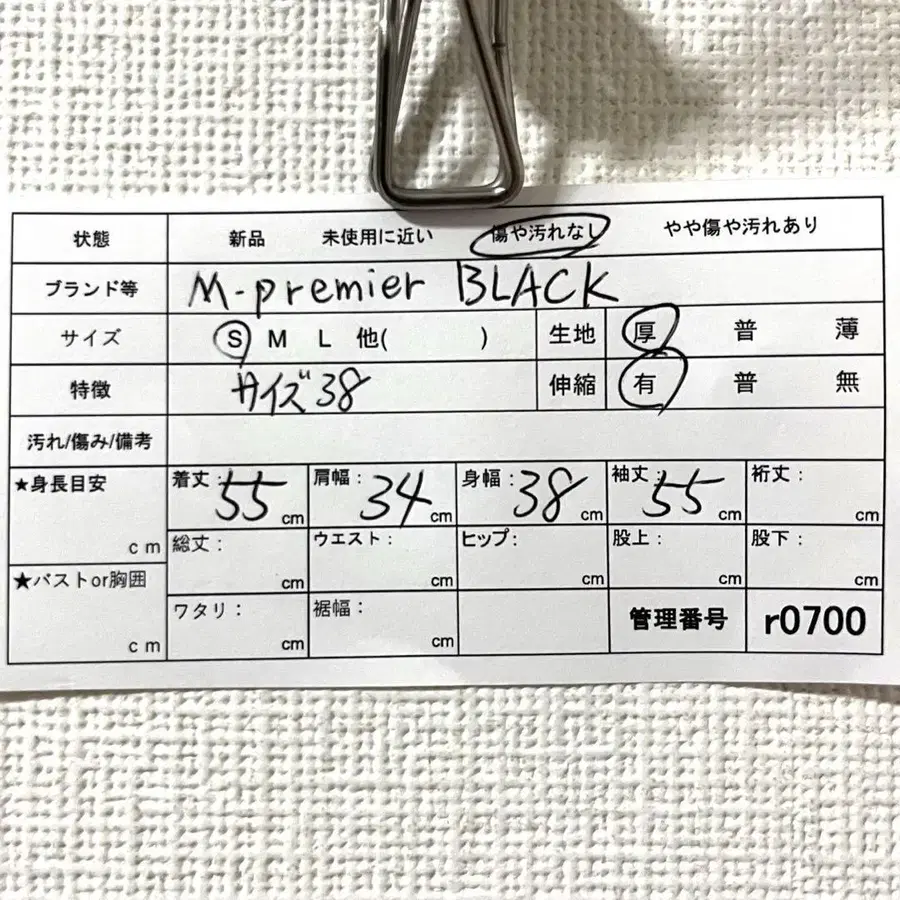 状態 新品 未使用に近い 傷や汚れなし やや傷や汚れあり
ブランド等 M-premier BLACK
サイズ S M L 他( ) 生地 厚 普 薄
特徴 サイズ38 伸縮 有 普 無
汚れ/傷み/備考
★身長目安 cm
着丈: 55 cm 肩幅: 34 cm 身幅: 38 cm 袖丈: 55 cm 裄丈: cm
総丈: cm ウエスト: cm ヒップ: cm 股上: cm 股下: cm
★バストor胸囲 cm
ワタリ: cm 裾幅: cm 管理番号 r0700